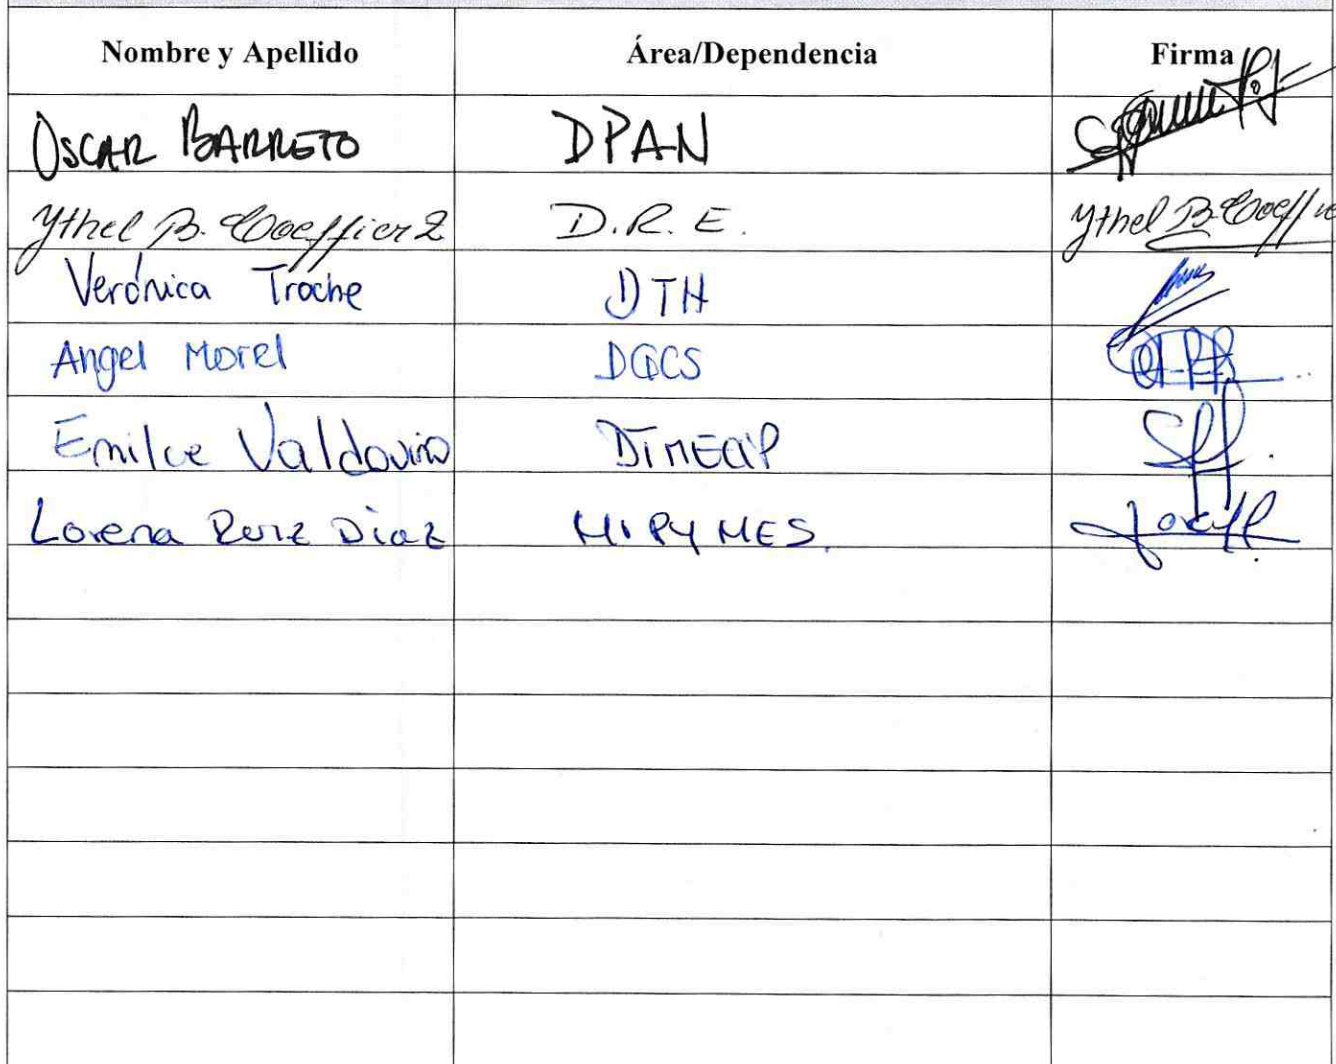 Nombre y Apellido Área/Dependencia Firma
OSCAR BARRETO DPAN
Ythel B. Coeffier Z D.R.E. Ythel B. Coeffie
Verónica Troche DTH
Angel Morel DGCS
Emilce Valdovino DIMECIP
Lorena Ruiz Diaz MIPYMES.